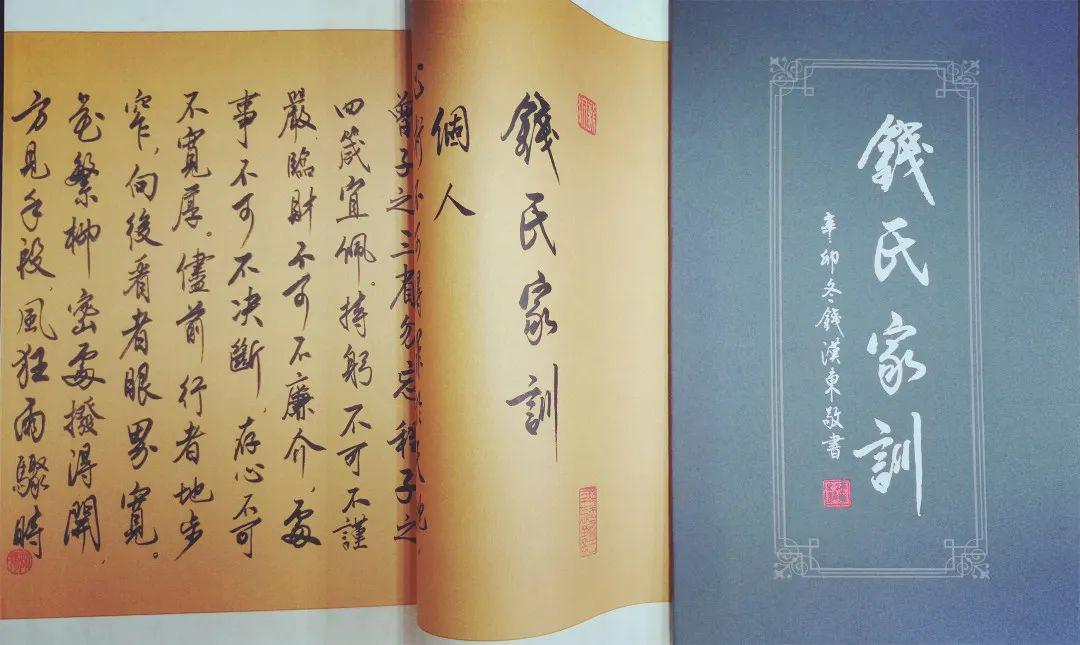 錢氏家訓
辛卯冬錢漢東敬書
錢氏家訓
個人
曾子之三省勿忘，程子之
四箴宜佩。持躬不可不謹
嚴，臨財不可不廉介，處
事不可不决斷，存心不可
不寬厚。儘前行者地步
窄，向後看者眼界寬。
花繁柳密處撥得開，
方見手段，風狂雨驟時